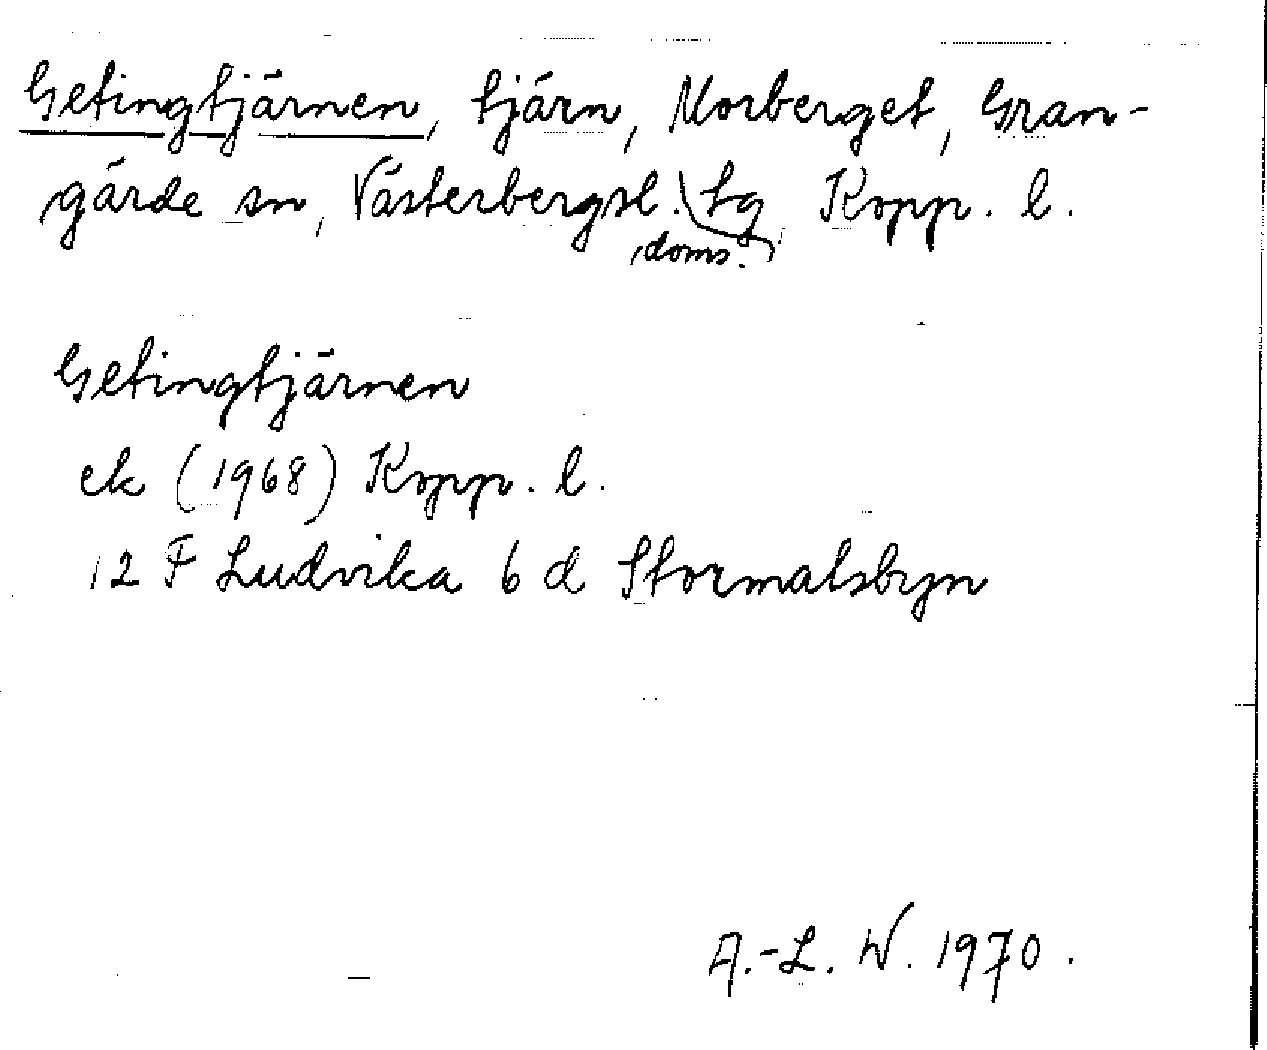 Getingtjärnen, tjärn, Norberget, Gran-
gärde sn, Västerbergsl. doms. tg, Kopp. l.
Getingtjärnen
ek (1968) Kopp. l.
12 F Ludvika 6 d Stormalsbyn
A.-L. W. 1970.